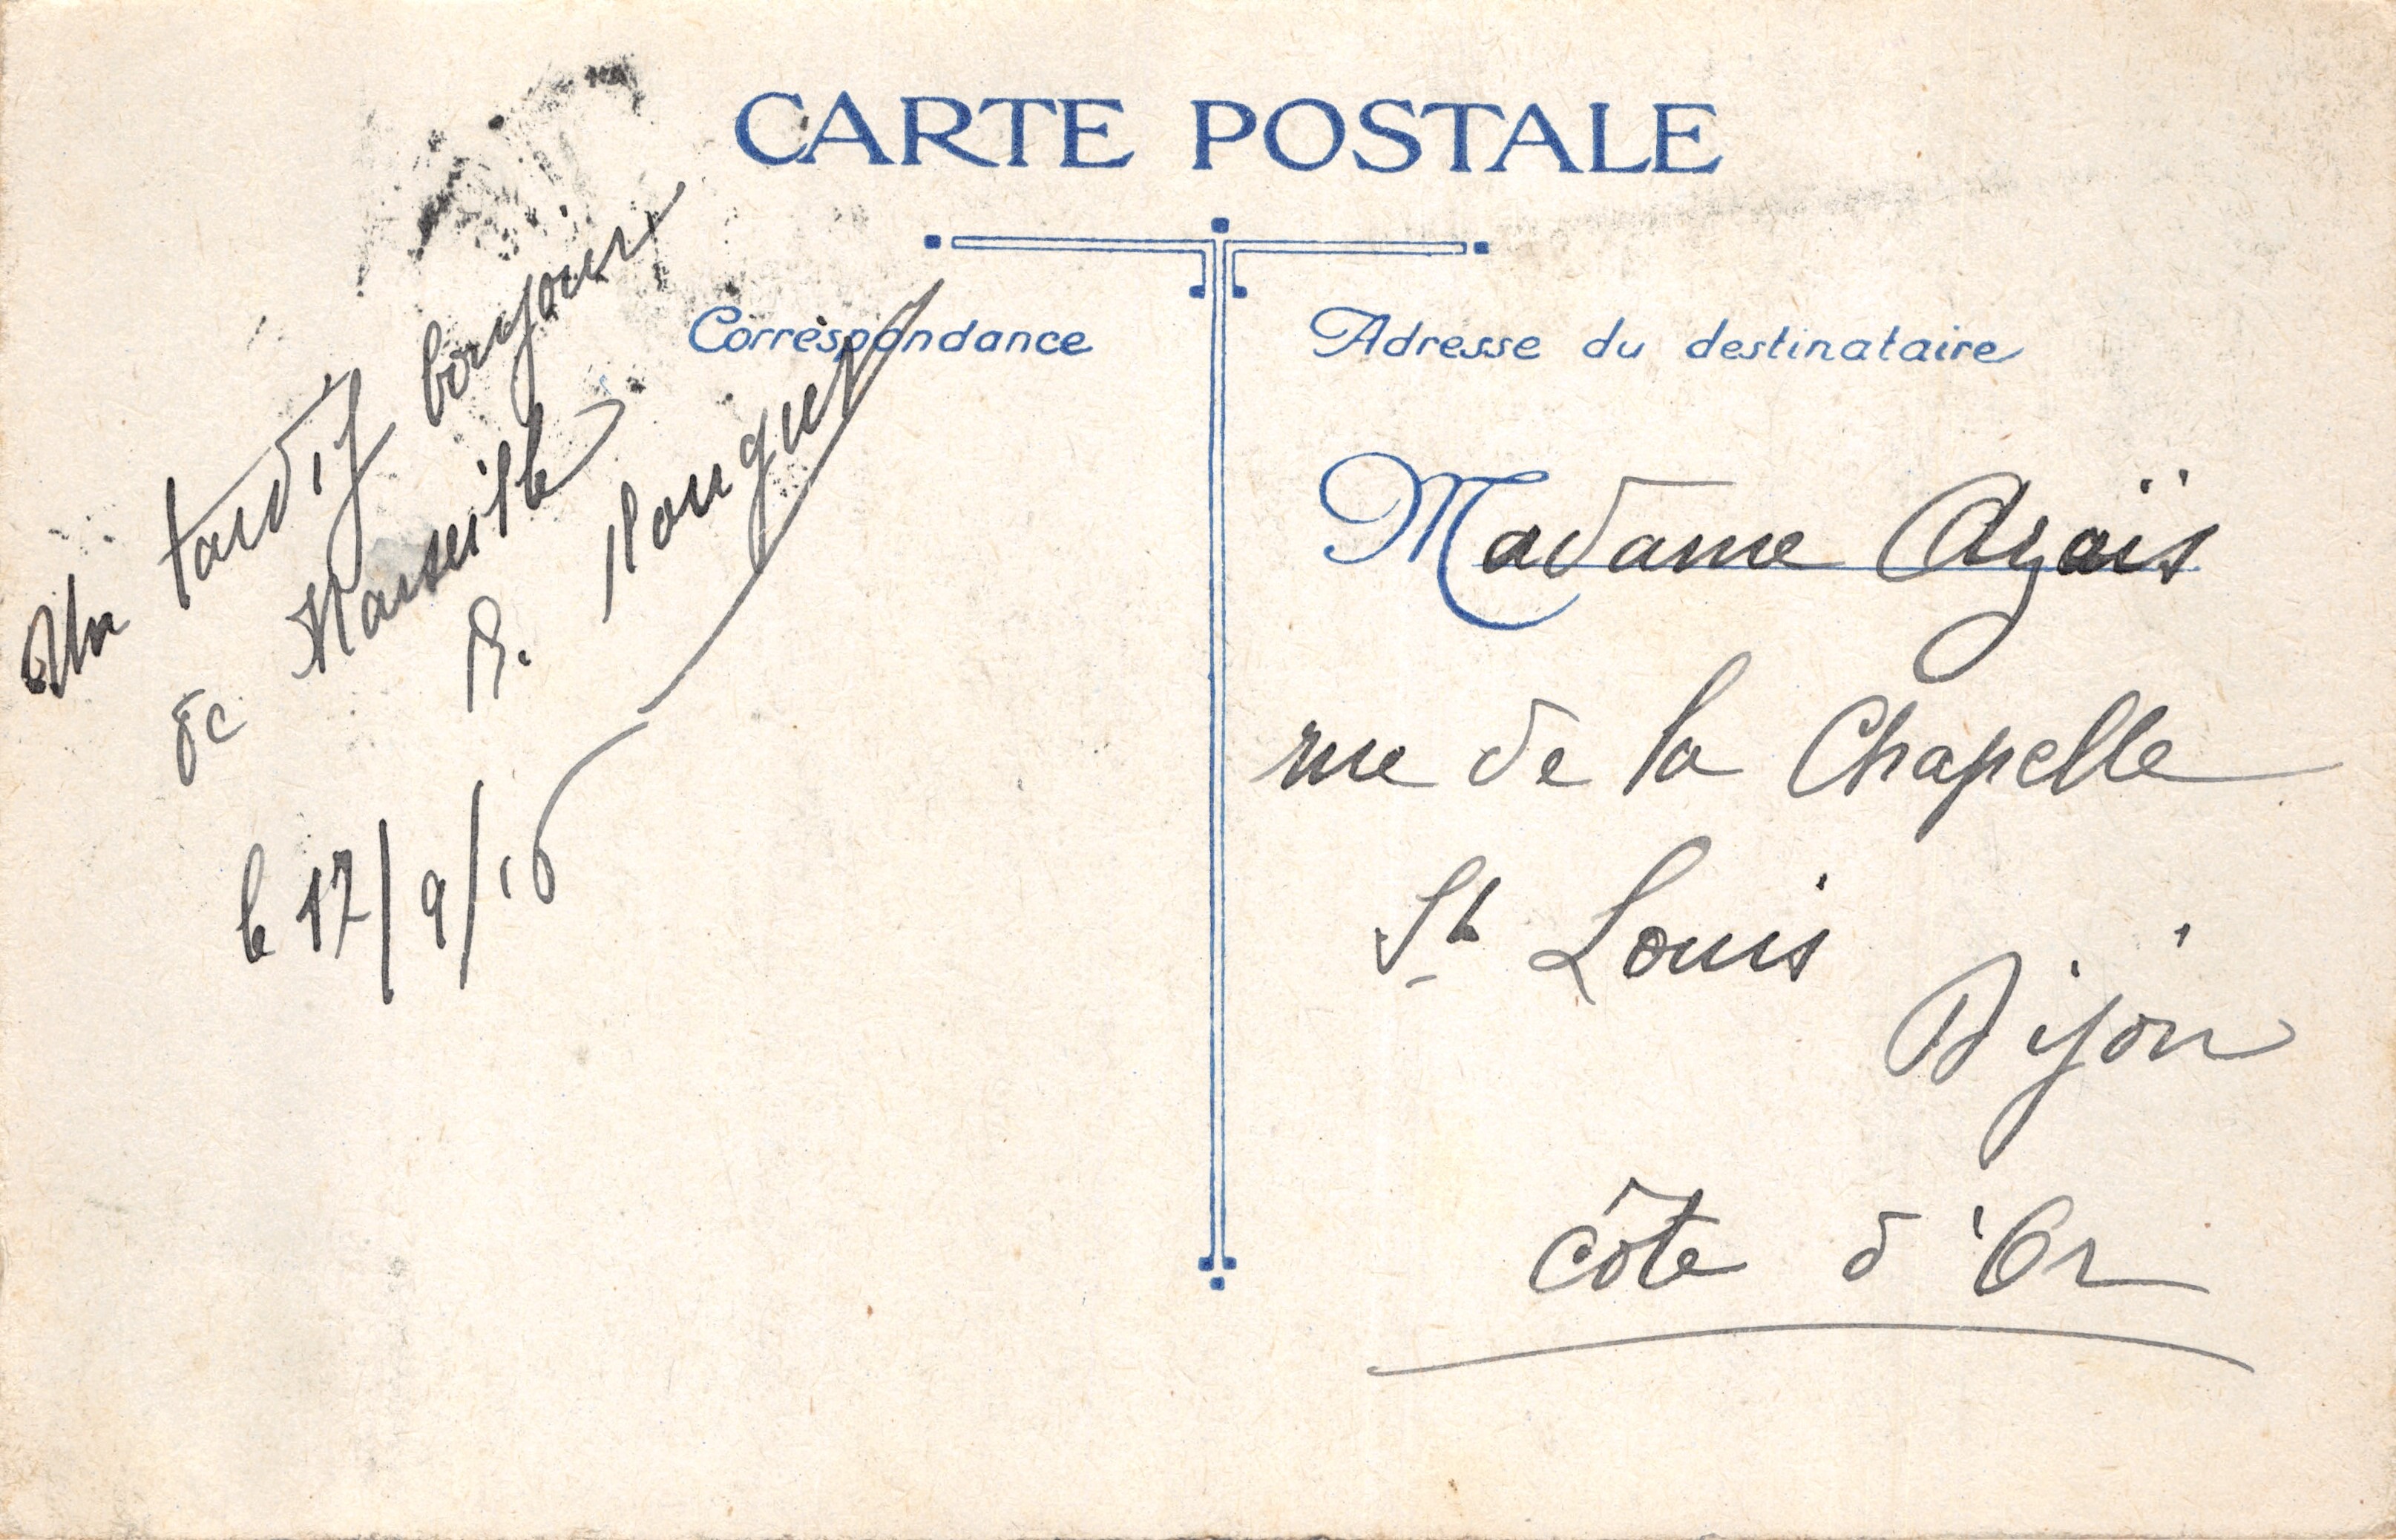 CARTE POSTALE
Correspondance
Un tardif bonjour
de Marseille
R. Rouquet
le 17/9/16
Adresse du destinataire
Madame Azaïs
rue de la Chapelle
St Louis
Dijon
Côte d'Or